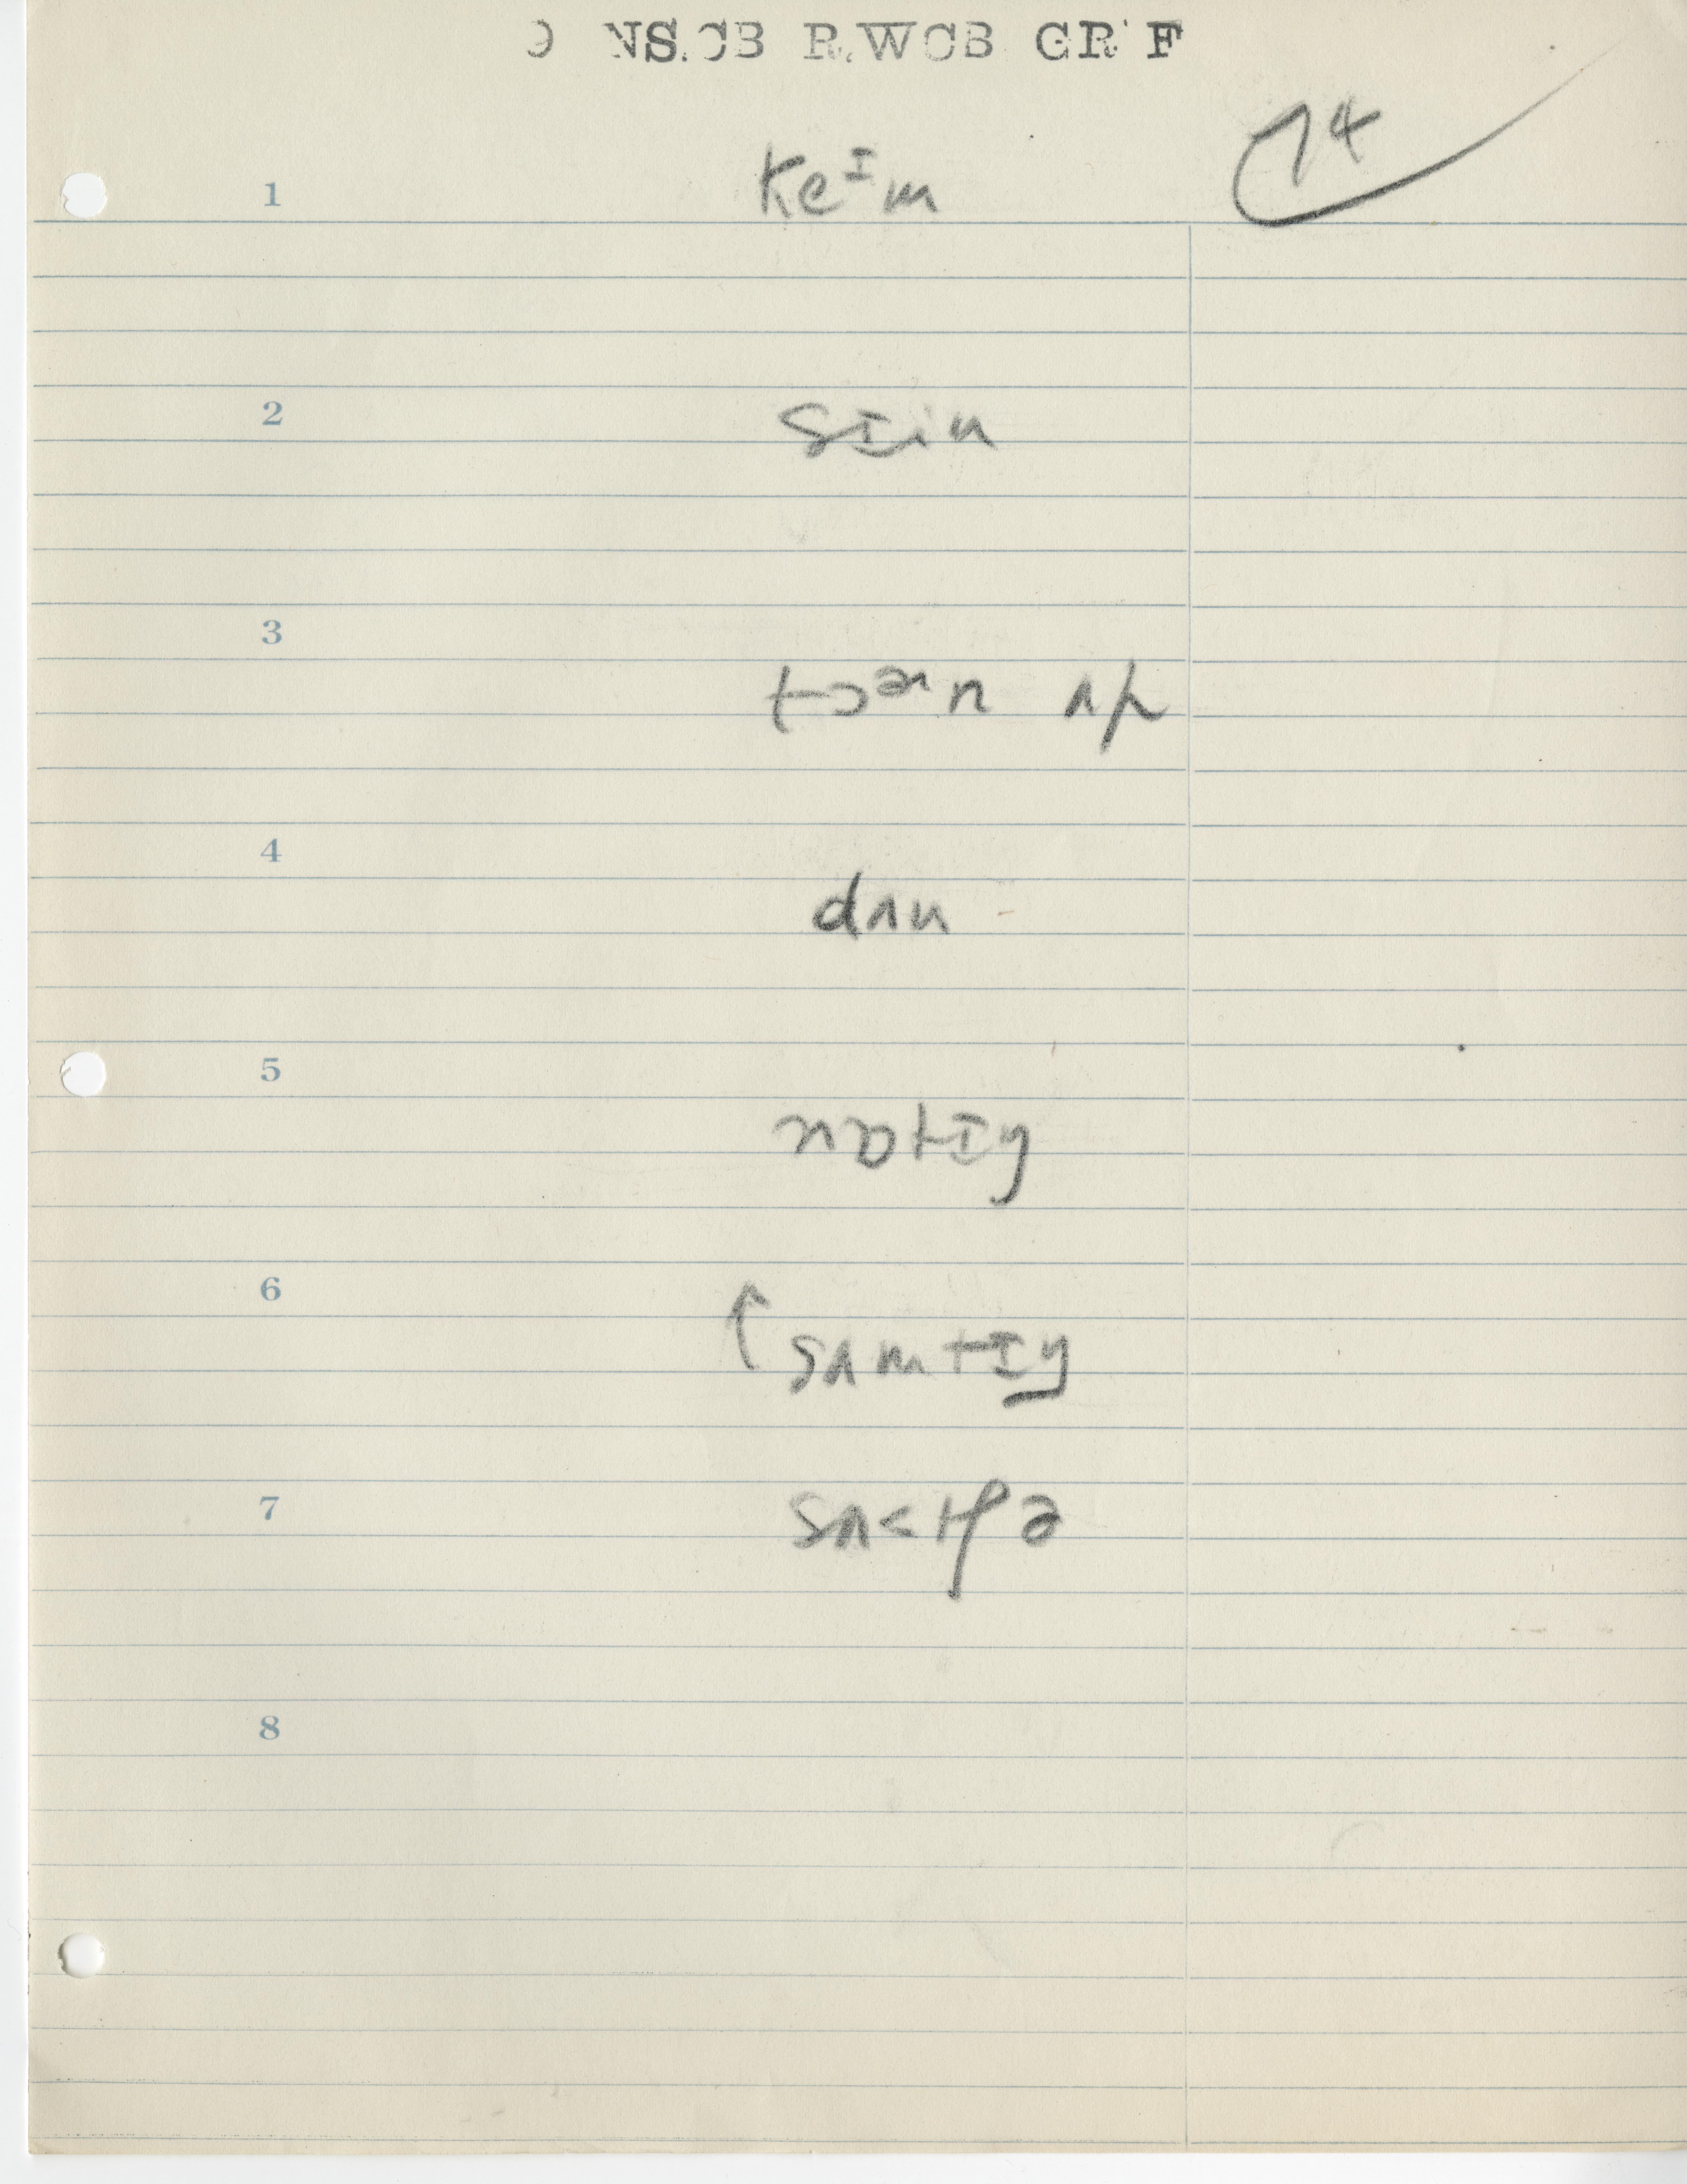 NS.CB R.WCB GR F
74
1 keɪm
2 sɪin
3 tɔən ʌp
4 dʌn
5 nɒtɪŋ
6 ↑ sʌmtɪŋ
7 sʌ<tʃə
8